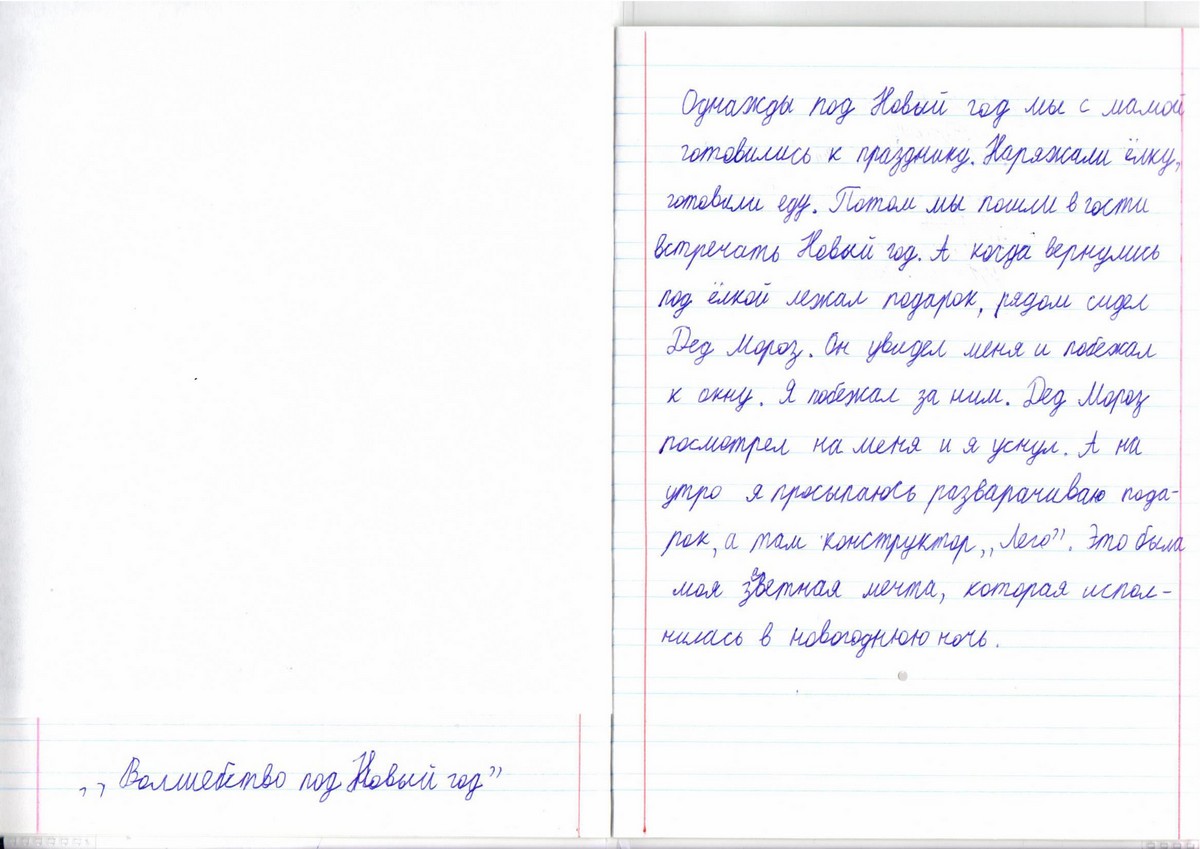 „Волшебство под Новый год”
Однажды под Новый год мы с мамой
готовились к празднику. Наряжали ёлку,
готовили еду. Потом мы пошли в гости
встречать Новый год. А когда вернулись
под ёлкой лежал подарок, рядом сидел
Дед Мороз. Он увидел меня и побежал
к окну. Я побежал за ним. Дед Мороз
посмотрел на меня и я уснул. А на
утро я просыпаюсь разварачиваю пода-
рок, а там конструктор „Лего”. Это была
моя заветная мечта, которая испол-
нилась в новогоднюю ночь.